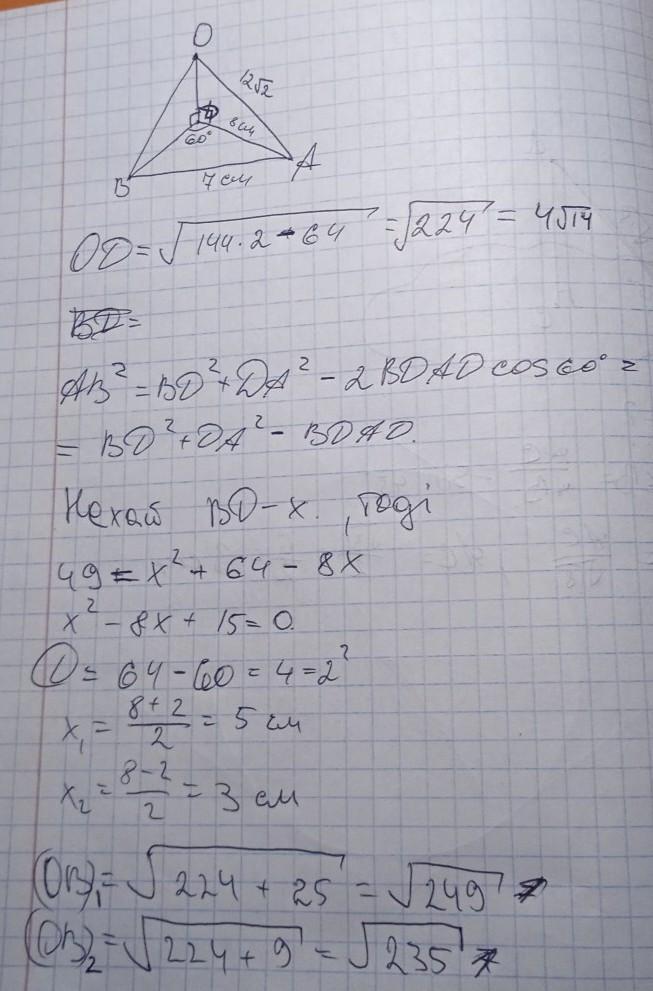 O
12√2
8 см
60°
B
A
7 см
OD = √144·2 - 64 = √224 = 4√14
BD =
AB² = BD² + DA² - 2BDAD cos60° =
= BD² + DA² - BDAD.
Нехай BD - x. , тоді
49 = x² + 64 - 8x
x² - 8x + 15 = 0.
D = 64 - 60 = 4 = 2²
x₁ = (8+2)/2 = 5 см
x₂ = (8-2)/2 = 3 см
(OB)₁ = √224 + 25 = √249
(OB)₂ = √224 + 9 = √235